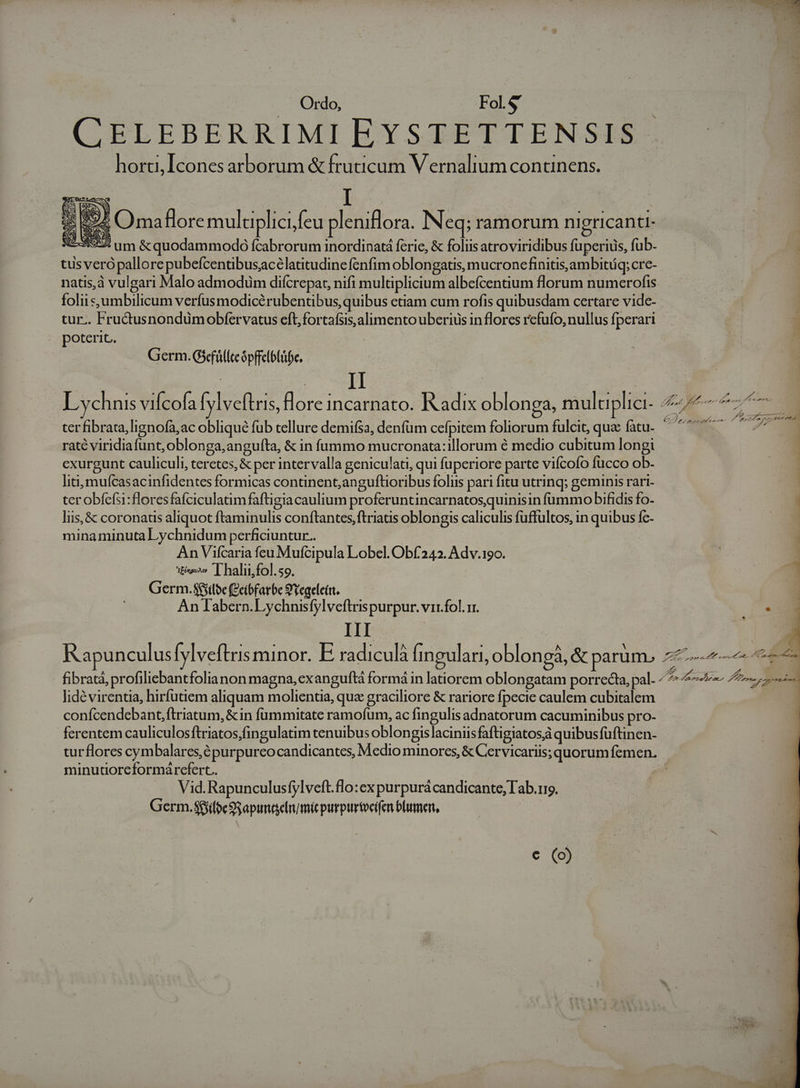 Ordo, Fol. 5
CELEBERRIMI EYSTETTENSIS
horti, Icones arborum & fruticum Vernalium continens.
I
POma flore multiplici, seu pleniflora. Neq; ramorum nigricanti-
um & quodammodò scabrorum inordinatâ serie, & foliis atroviridibus superiùs, sub-
tùs verò pallore pubescentibus, ac è latitudine sensim oblongatis, mucrone finitis, ambitúq; cre-
natis, à vulgari Malo admodùm discrepat, nisi multiplicium albescentium florum numerosis
foliis, umbilicum versus modicè rubentibus, quibus etiam cum rosis quibusdam certare vide-
tur. Fructus nondùm observatus est, fortassis, alimento uberiùs in flores refuso, nullus sperari
poterit.
Germ. Gefüllte öpffelblühe.
II
Lychnis viscosa sylvestris, flore incarnato. Radix oblonga, multiplici-
ter fibrata, lignosa, ac obliquè sub tellure demissa, densum cespitem foliorum fulcit, quæ satu-
ratè viridia sunt, oblonga, angusta, & in summo mucronata: illorum è medio cubitum longi
exurgunt cauliculi, teretes, & per intervalla geniculati, qui superiore parte viscoso succo ob-
liti, muscas ac insidentes formicas continent, angustioribus foliis pari situ utrinq; geminis rari-
ter obsessi: flores fasciculatim fastigia caulium proferunt incarnatos, quinis in summo bifidis fo-
liis, & coronatis aliquot staminulis constantes, striatis oblongis caliculis suffultos, in quibus se-
mina minuta Lychnidum perficiuntur.
An Viscaria seu Muscipula Lobel. Obs. 242. Adv. 190.
Thalii, fol. 59.
Germ. Wilde Leibfarbe Negelein.
An Tabern. Lychnis sylvestris purpur. vii. fol. 11.
III
Rapunculus sylvestris minor. E radiculâ singulari, oblongâ, & parùm
fibratâ, prosiliebant folia non magna, ex angustâ formâ in latiorem oblongatam porrecta, pal-
lidè virentia, hirsutiem aliquam molientia, quæ graciliore & rariore specie caulem cubitalem
conscendebant, striatum, & in summitate ramosum, ac singulis adnatorum cacuminibus pro-
ferentem cauliculos striatos, singulatim tenuibus oblongis laciniis fastigiatos, à quibus sustinen-
tur flores cymbalares, è purpureo candicantes, Medio minores, & Cervicariis; quorum semen
minutiore formâ refert.
Vid. Rapunculus sylvest. flo: ex purpurâ candicante, Tab. 119.
Germ. Wilde Rapuntzeln / mit purpurweissen blumen.
c (o)